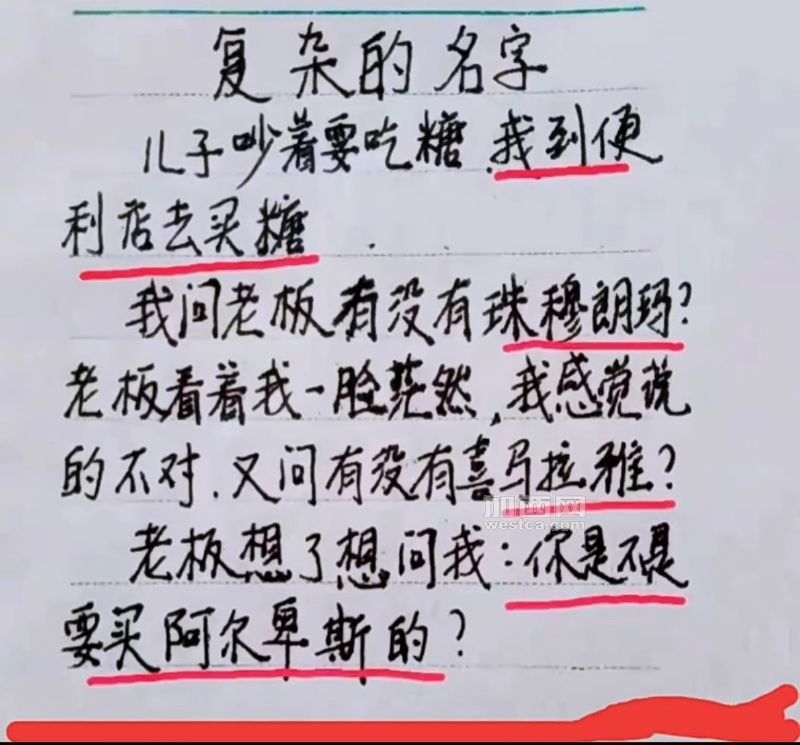 复杂的名字
儿子吵着要吃糖,我到便
利店去买糖.
我问老板有没有珠穆朗玛?
老板看着我一脸茫然,我感觉说
的不对.又问有没有喜马拉雅?
加西网
westca.com
老板想了想问我:你是不是
要买阿尔卑斯的?